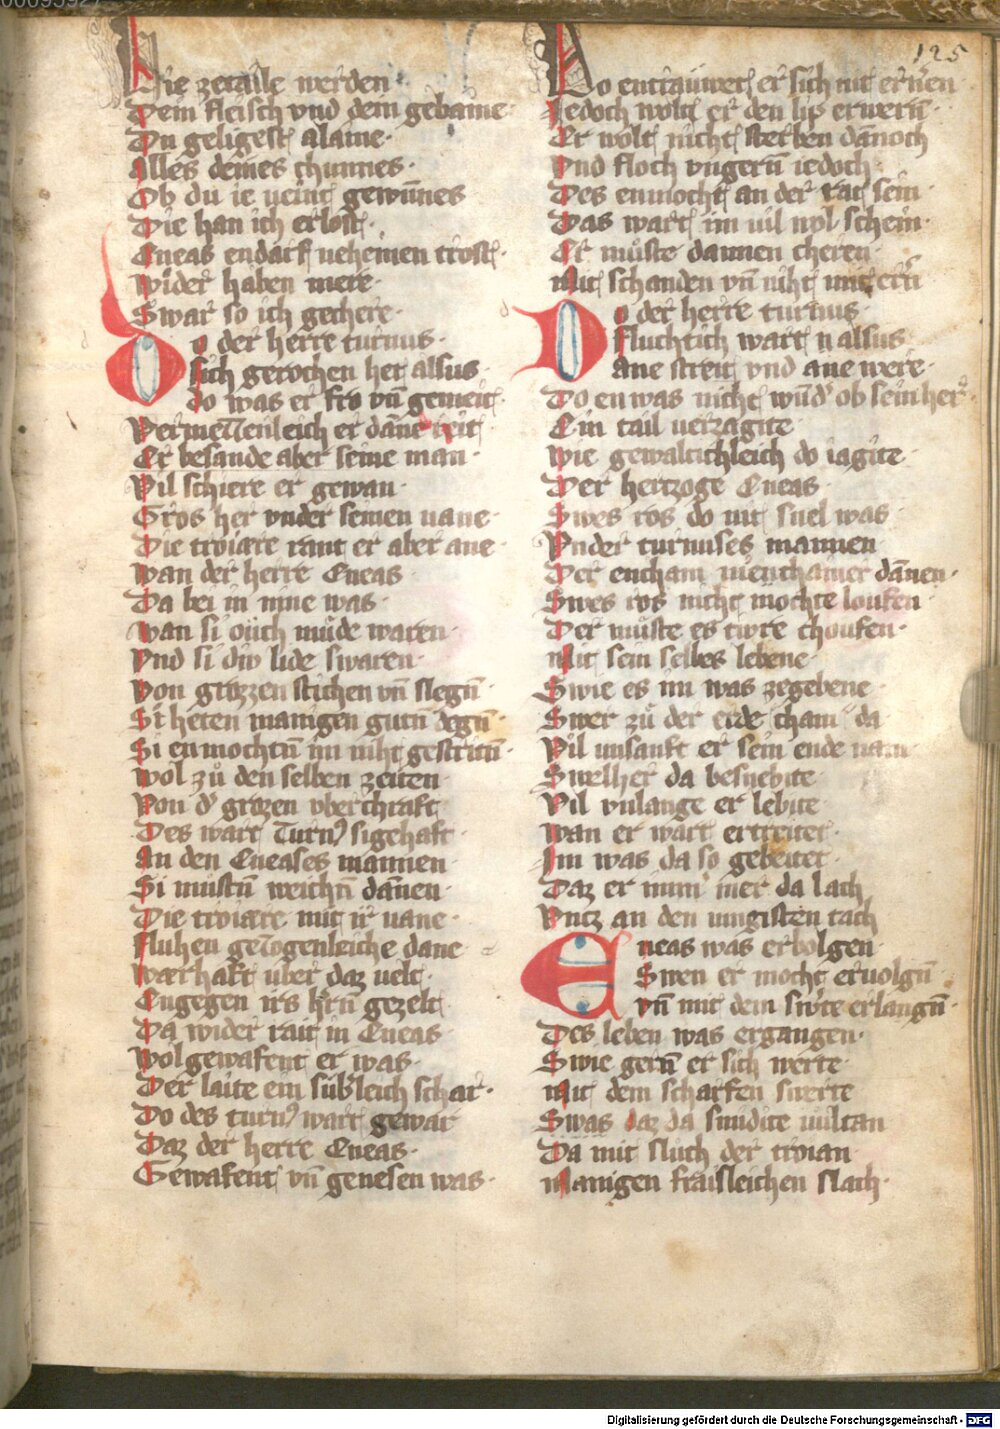 125
Hie zetaille werden
Dem fleisch vnd dem gebaine
Du geligest alaine
alles deines chunnes
Ob du ie veint gewūnes
Die han ich erlost
Eneas endarf neheinen trost
wider haben mere
Swar so ich gechere
Do der herre turnus
sich gerochen het alsus
do was er fro vn̄ gemeit
Vermezzenleich er dāne reit
Er besande aber seine man
Vil schiere er gewan
Gros her vnder seinen vane
Die troiare rant er aber ane
wan der herre Eneas
Da bei in nine was
wan si oůch můde waren
Vnd si div lide swaren
von grozzen stichen vn̄ slegn̄
Si heten manigen gutn̄ degn̄
Si en mochtn̄ im niht gestritn̄
wol zů den selben zeiten
Von d' grozen vberchraft
Des wart Turn⁹ sigehaft
an den Eneases mannen
Si mustn̄ weichn̄ dānen
Die troiare mit ir vane
fluhen gezogenleiche dane
warhaft vber daz velt
Engegen irs hrn̄ gezelt
Da wider rait in Eneas
wol gewafent er was
Der laite ein sůb'leich schar
Do des turn⁹ wart gewar
Daz der herre Eneas
Gewafent vn̄ genesen was
Do entrauwet er sich nit ernern
Jedoch wolt er den lip erwern̄
Er wolt nicht sterben dānoch
vnd floch vngern̄ iedoch
Des enmocht an der rat sein
Das wart im vil wol schein
Er můste dannen cheren
Mit schanden vn̄ niht mit ern̄
Do der herre turnus
fluchtich wart alsus
ane streit vnd ane were
Do en was nicht wūd' ob sein her
Ein tail verzagite
wie gewaltichleich do iagite
Der hertzoge Eneas
Swes ros do nit snel was
Vnder turnuses mannen
Der encham nienthainer dānen
Swes ros nicht mochte loufen
Der můste es tivre choufen
Mit sein selbes lebene
Swie es im was zegebene
Swer zů der erde cham da
Vil unsanft er sein ende nam
Swelher da besnebite
Vil vnlange er lebite
wan er wart ertreitet
Im was da so gebeitet
Daz er nim' mer da lach
Vntz an den iungisten tach
Eneas was erbolgen
Swen er mocht ervolgn̄
vn̄ mit dem swrte erlangn̄
Des leben was ergangen
Swie gern̄ er sich werte
Mit dem scharfen swerte
Swas daz da smidite uultan
Da mit sluch der troian
Manigen fraisleichen slach
Digitalisierung gefördert durch die Deutsche Forschungsgemeinschaft - DFG